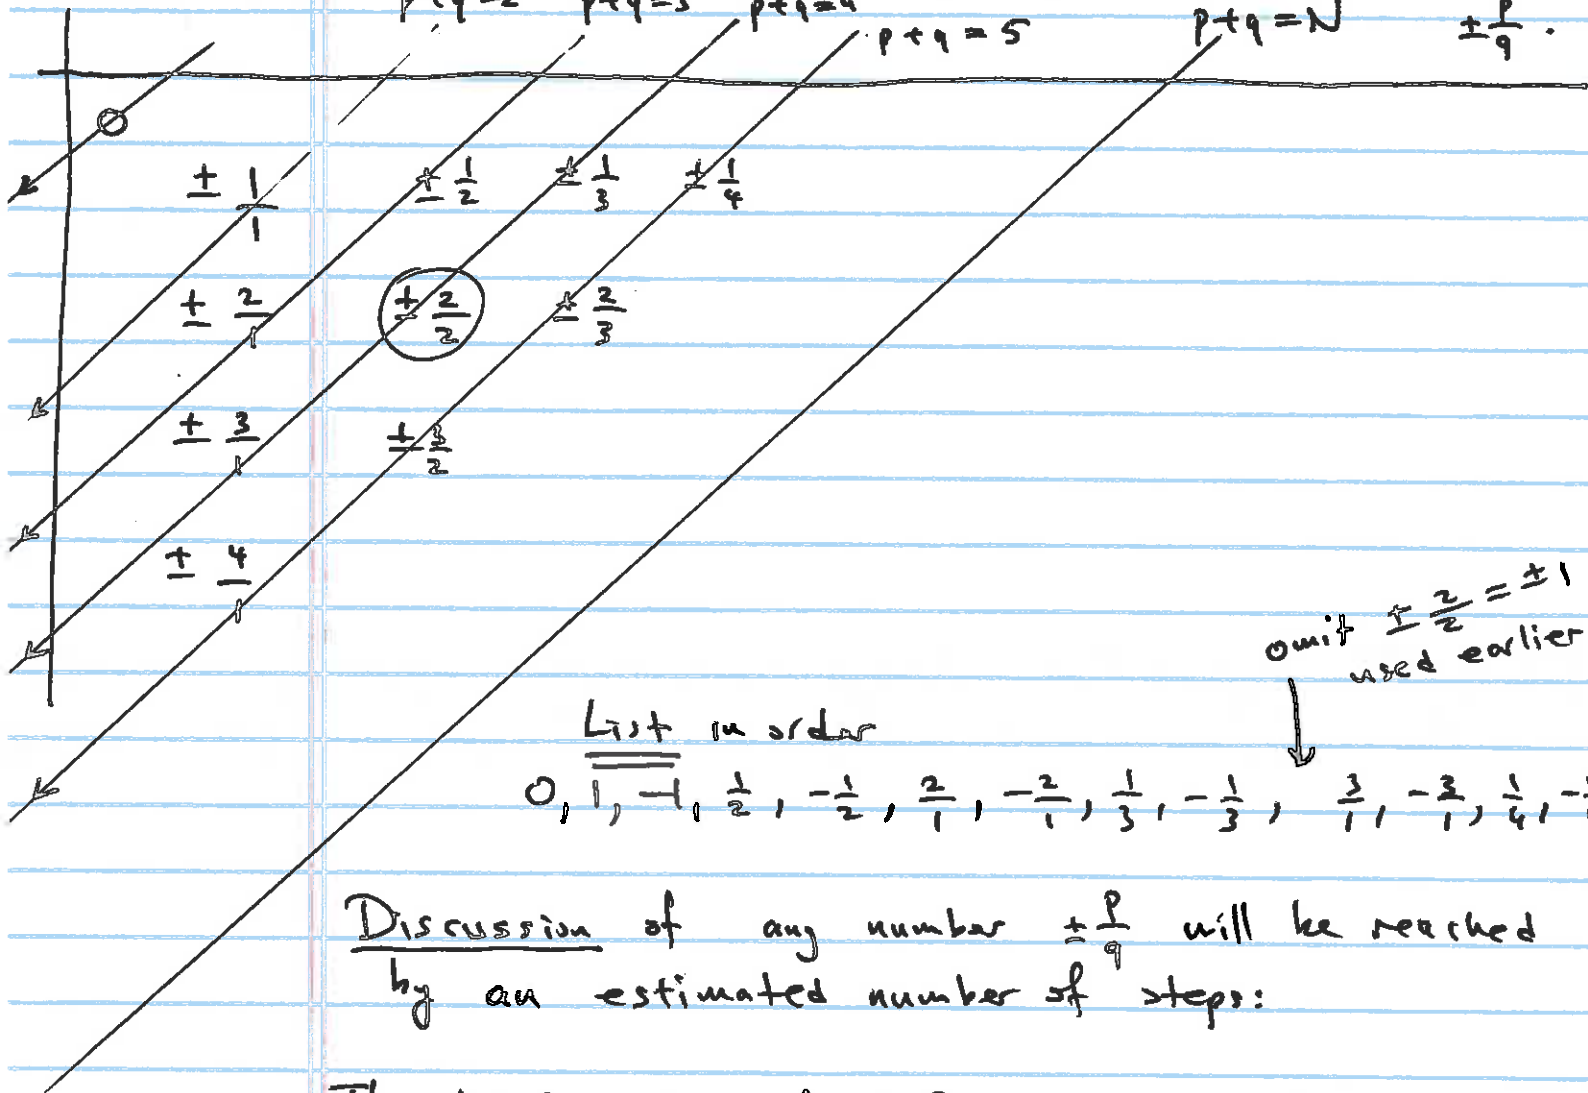 p+q=2 p+q=3 p+q=4 p+q=5 p+q=N ± p/q .
0
± 1/1 ± 1/2 ± 1/3 ± 1/4
± 2/1 ± 2/2 ± 2/3
± 3/1 ± 3/2
± 4/1
omit ± 2/2 = ±1
used earlier
List in order
0, 1, -1, 1/2, -1/2, 2/1, -2/1, 1/3, -1/3, 3/1, -3/1, 1/4, -
Discussion of any number ± p/q will be reached
by an estimated number of steps: